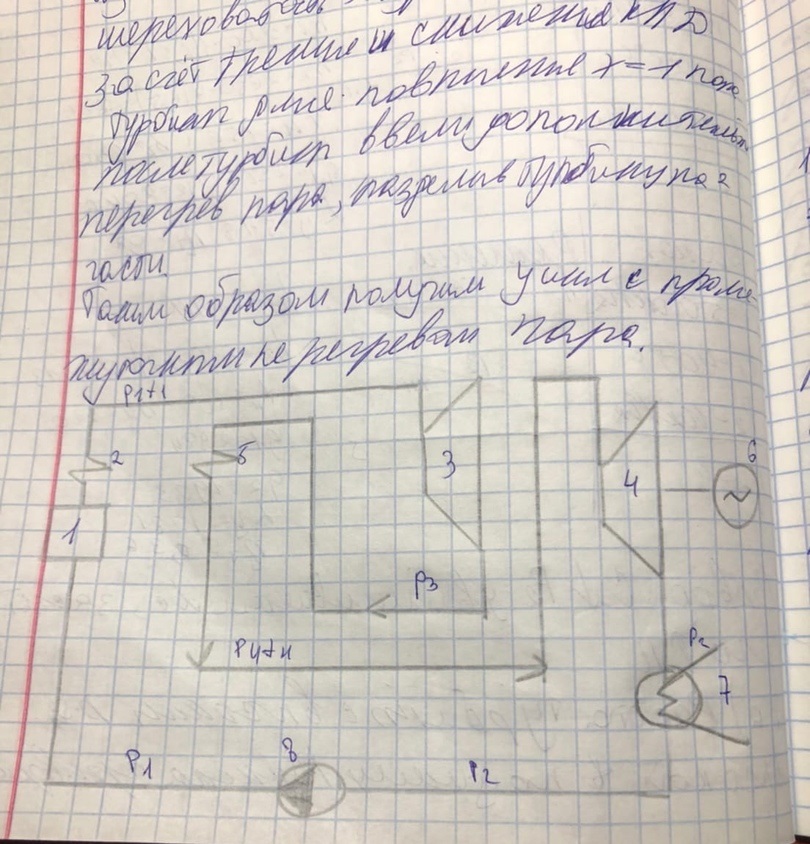 шереховатость
за счёт трения и снижения КПД
турбин для повышения х=1 пара
после турбин ввели дополнительн
перегрев пара, разделив турбину на 2
части.
Таким образом получим цикл с проме-
жуточным перегревом пара.
P1t1
2
5
3
6
4
1
P3
P4t4
P2
7
P1
8
P2